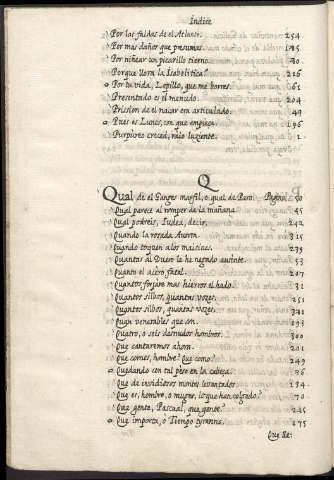 Indice
Por las faldas de el Atlante. 254
Por mas daños que presumas.
Por niñear un picarillo tierno. 30
Porque llora la Isabelitica? 226
Por tu vida, Lopillo, que me borres. 61
Presentado es el menudo. 204
Prission de el nacar era articulado. 49
Pues es Lunes, con que empieza. 196
Purpureo creced, rayo luziente. 2
Q
Qual de el Ganges marfil, o qual de Paro. Pagina. 50
Qual parece al romper de la mañana 45
Qual podreis, Iudea, decir. 242
Quando la rosada Aurora. 315
Quando toquen a los maitines. 239
Quantas al Duero le he negado ausente. 53
Quanto el acero fatal. 207
Quantos forjare mas hierros el hado. 31
Quantos silbos, quantas vozes. 251
Quantos silbos, quantas vozes. 321
Quan venerables que son. 393
Quatro, o seis desnudos hombros. 300
Que cantaremos ahora. 201
Que comes, hombre? Que como? 249
Quedando con tal peso en la cabeza. 76
Que de invidiosos montes levantados 134
Que es, hombre, o muger, lo que han colgado? 70
Que gente, Pascual, que gente? 245
Que importa, o Tiempo tyranno. 275
Que se: